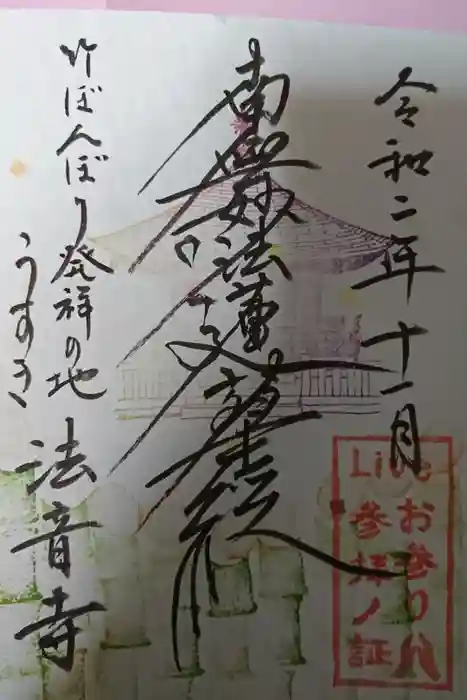 令和二年十一月
南無妙法蓮華経
竹ぼんぼり発祥の地
うすき
法音寺
お参り
Live参拝ノ証